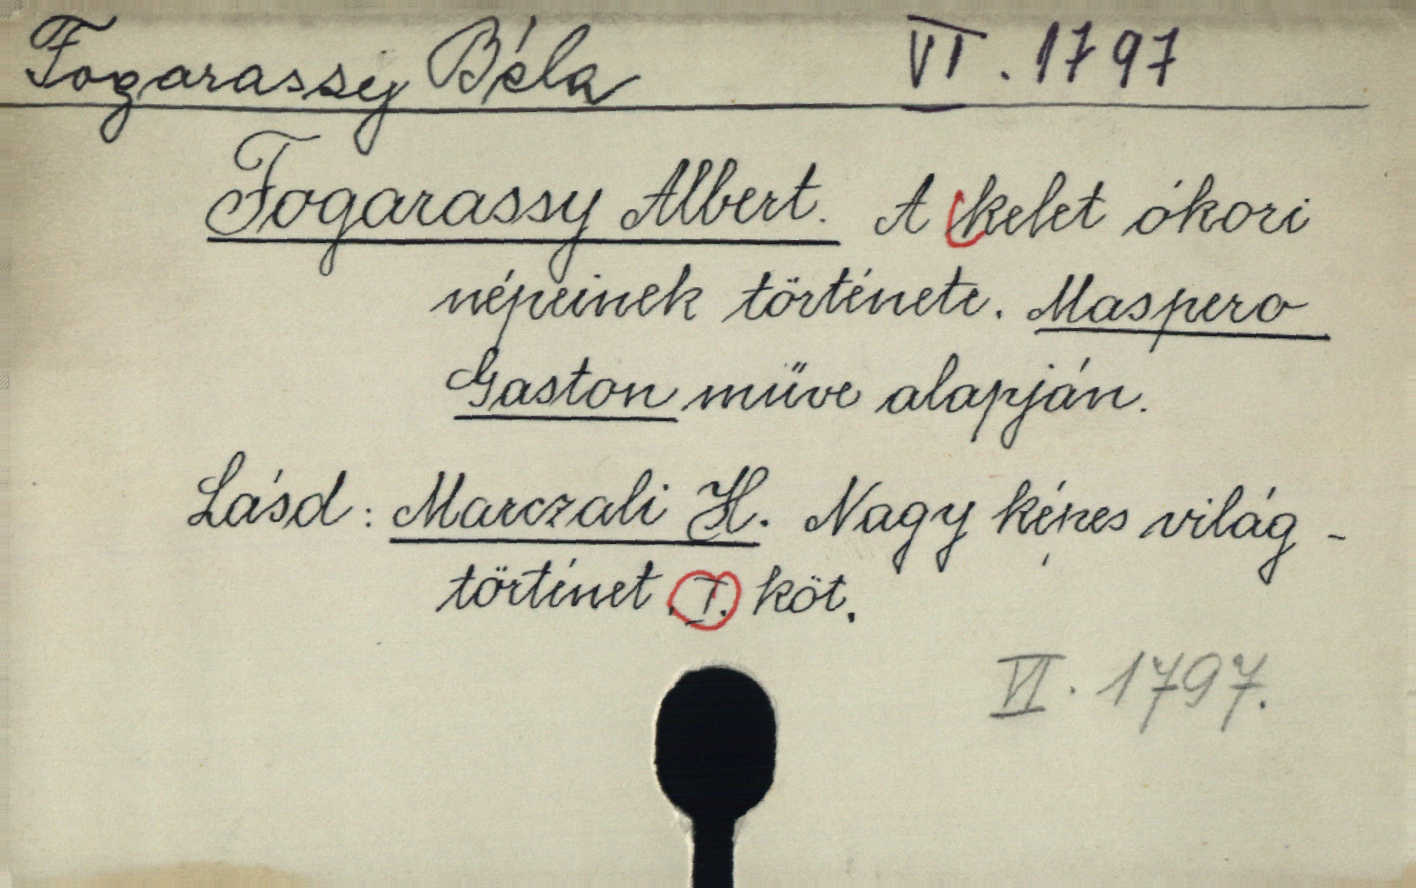 Fogarassy Béla VI. 1797
Fogarassy Albert. A kelet ókori
népeinek története. Maspero
Gaston műve alapján.
Lásd: Marczali H. Nagy képes világ-
történet. I. köt.
VI. 1797.